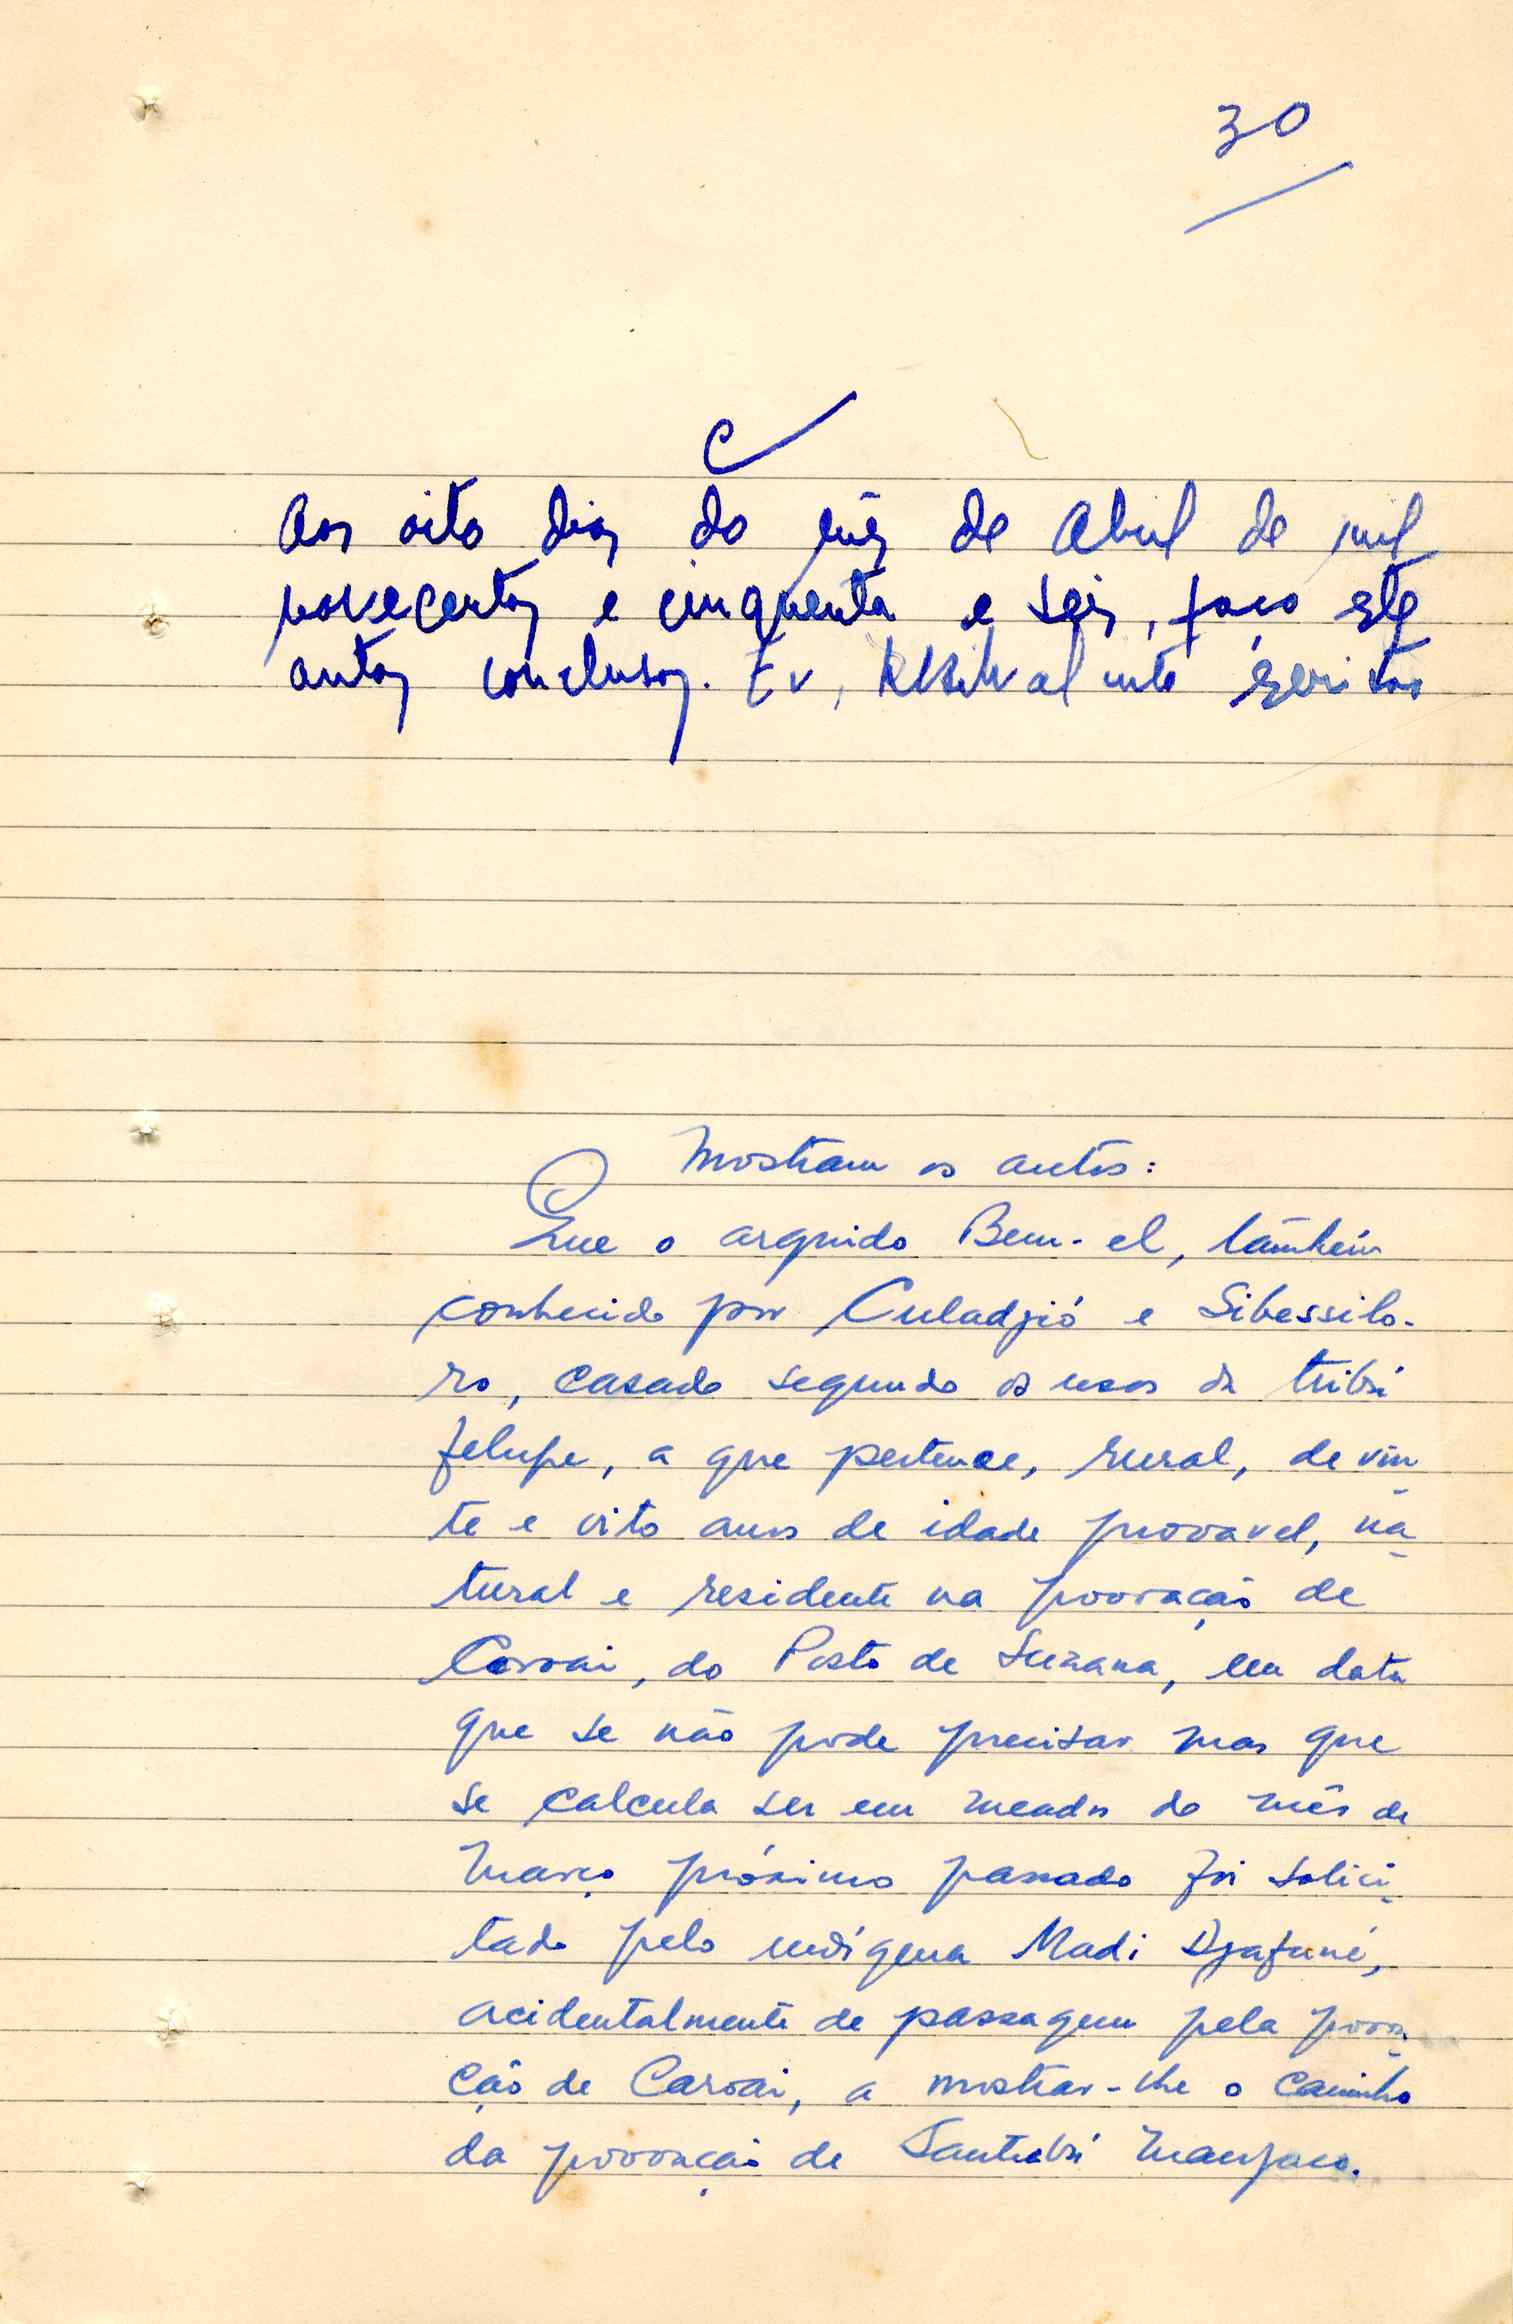 30
C
Aos oito dias do mês de Abril de mil
novecentos e cinquenta e seis, faço este
autos conclusos. Eu,
Mostram os autos:
Que o arguido Bem-el, também
conhecido por Culadjió e Sibessilo-
ro, casado segundo os usos da tribu
felupe, a que pertence, rural, de vin
te e oito anos de idade provavel, na
tural e residente na povoação de
Carvai, do Posto de Suzana, em data
que se não pode precisar mas que
se calcula ser em meados do mês de
Março próximo passado foi solici-
tado pelo indígena Madi Djafuné,
acidentalmente de passagem pela povoa-
ção de Carvai, a mostrar-lhe o caminho
da povoação de Santubú Manjaco.